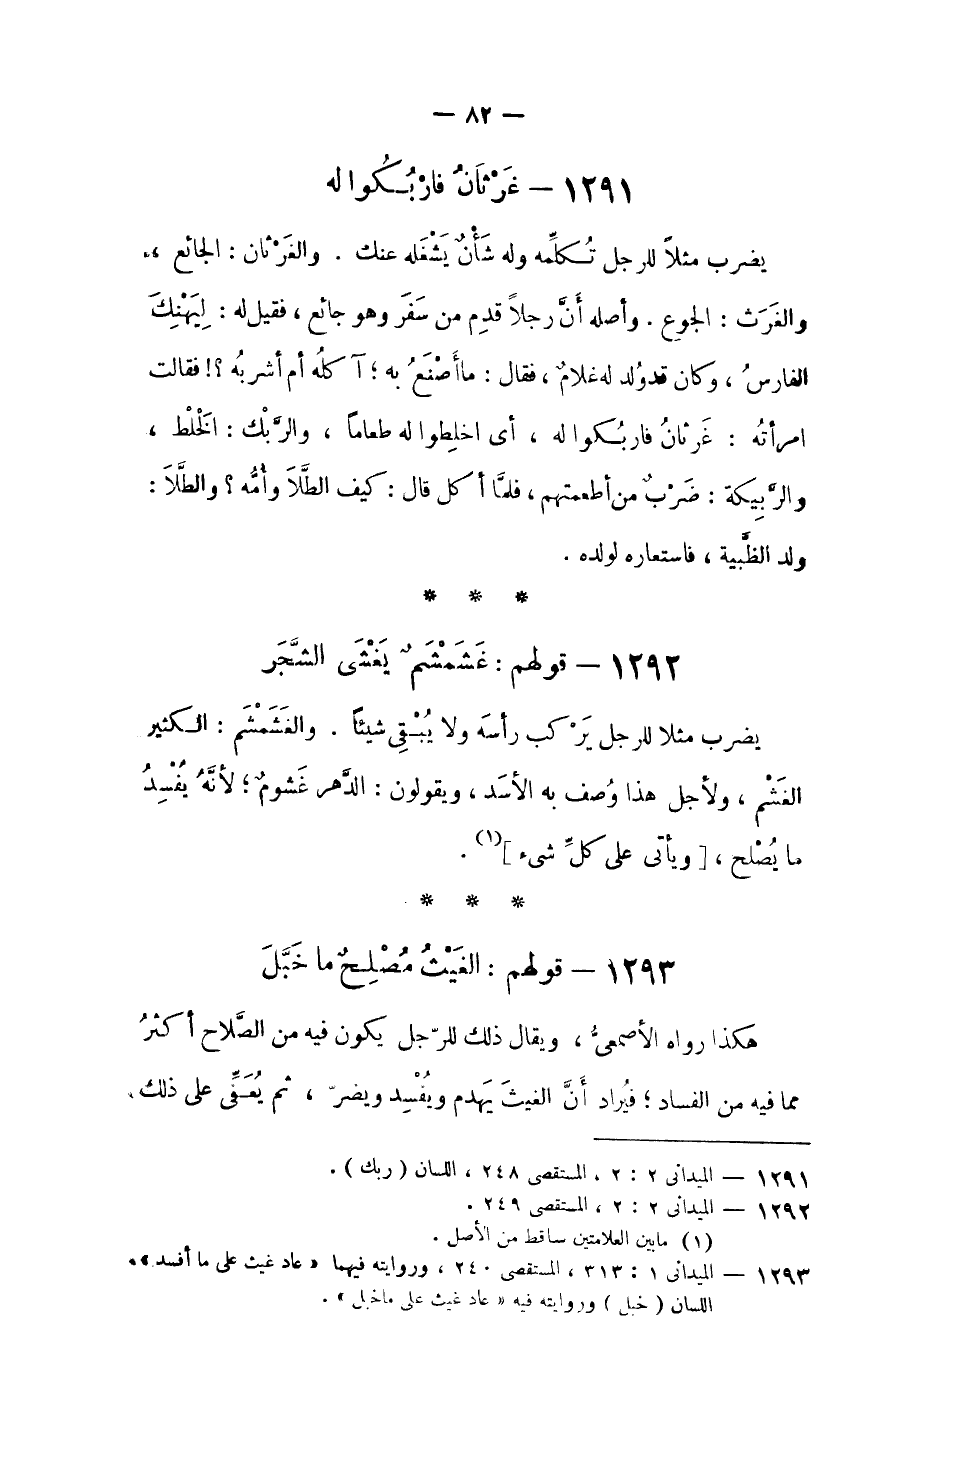 — ٨٢ —
١٢٩١ — غَرْثَانُ فارْبُـكُوا له
يضرب مثلاً للرجل تُـكلِّمه وله شَأْنٌ يَشْغَله عنك . والغَرْثان : الجائع ،
والغَرَث : الجوع . وأصله أنَّ رجلاً قدِم من سَفَر وهو جائع ، فقيل له : لِيَهْنِكَ
الفارسُ ، وكان قد وُلد له غلامٌ ، فقال : ما أَصْنَعُ به ؛ آكلُه أم أشربُه ؟! فقالت
امرأتُه : غَرثانُ فاربُـكوا له ، أى اخلِطوا له طعاماً ، والرَّبْك : الْخَلْط ،
والرَّبِيكة : ضَرْبٌ من أطعمتهم ، فلمَّا أكل قال : كيف الطَّلَا وأُمُّه ؟ والطَّلَا :
ولد الظَّبية ، فاستعاره لولده .
* * *
١٢٩٢ — قولهم : غَشَمْشَمٌ يَغْشَى الشَّجَر
يضرب مثلا للرجل يَرْكب رأسَه ولا يُبْـقِى شيئاً . والغَشَمْشَم : الـكثير
الغَشْم ، ولأجل هذا وُصف به الأسَد ، ويقولون : الدَّهر غَشومٌ ؛ لأنَّهُ يُفْسِدُ
ما يُصْلح ، [ ويأتى على كلِّ شىء ](١) .
* * *
١٢٩٣ — قولهم : الغَيْثُ مُصْلِـحٌ ما خَبَّلَ
هكذا رواه الأصمعىُّ ، ويقال ذلك للرّجل يكون فيه من الصَّلاح أكثرُ
مما فيه من الفساد ؛ فيُراد أنَّ الغيثَ يَهدم ويُفْسِد ويضرّ ، ثم يُعَـفِّى على ذلك
١٢٩١ — الميدانى ٢ : ٢ ، المستقصى ٢٤٨ ، اللسان ( ربك ) .
١٢٩٢ — الميدانى ٢ : ٢ ، المستقصى ٢٤٩ .
(١) مابين العلامتين ساقط من الأصل .
١٢٩٣ — الميدانى ١ : ٣١٣ ، المستقصى ٢٤٠ ، وروايته فيهما « عاد غيث على ما أفسد » .
اللسان ( خبل ) وروايته فيه « عاد غيث على ماخبل » .